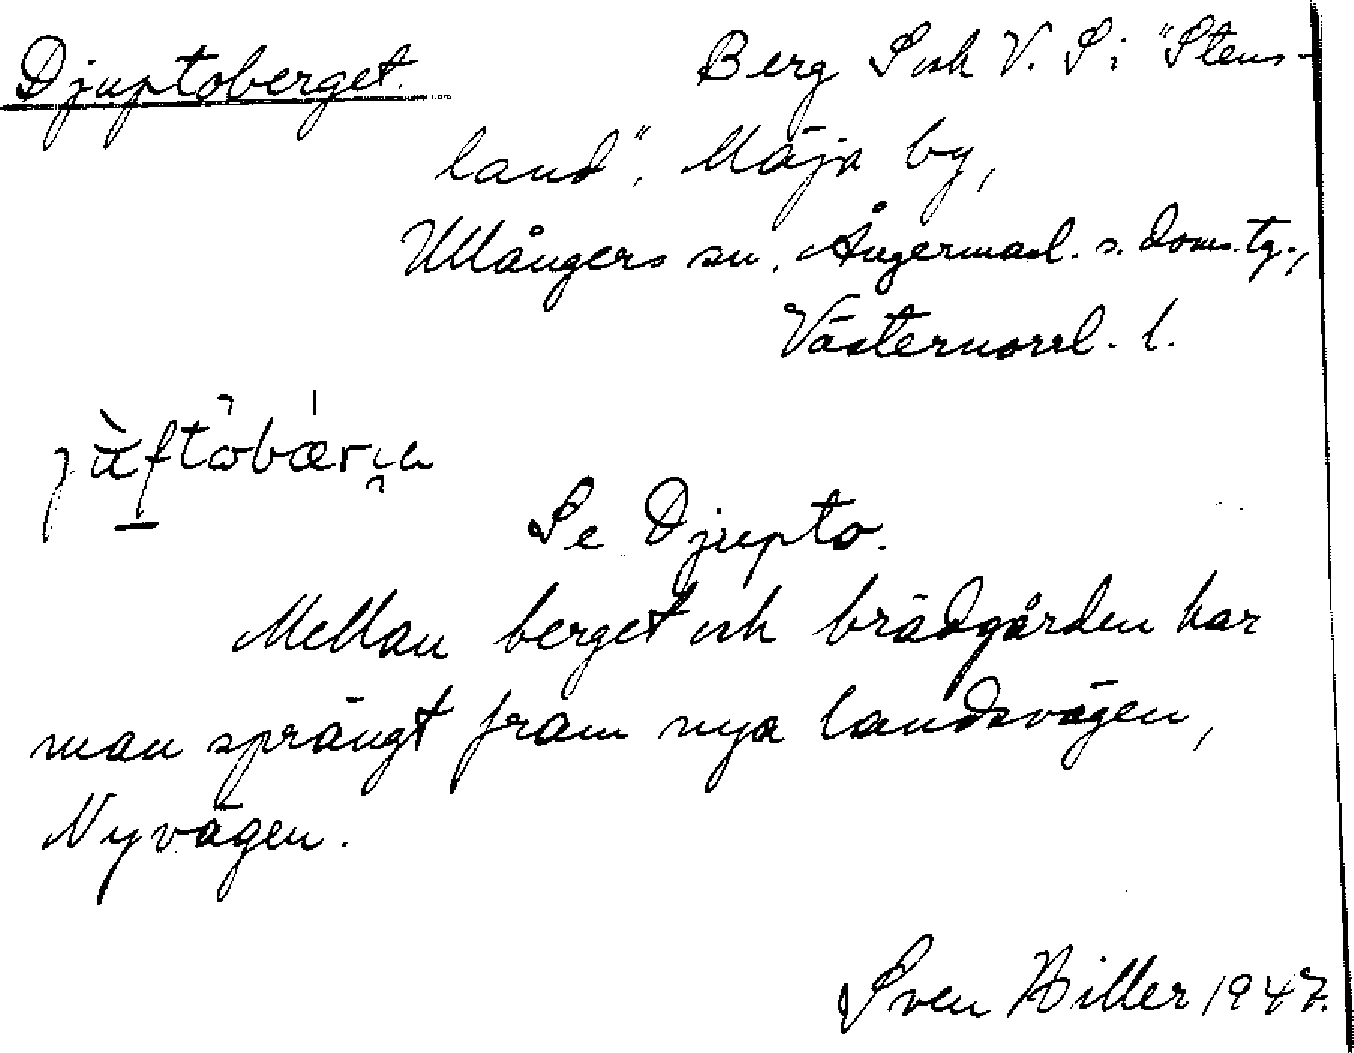 Djuptoberget. Berg S och V. S i "Stens-
land", Mäja by,
Ullångers sn. Ångermanl. s. doms. tg.,
Västernorrl. l.
Se Djupto.
Mellan berget och brädgården har
man sprängt fram nya landsvägen,
Nyvägen.
Sven Hiller 1947.